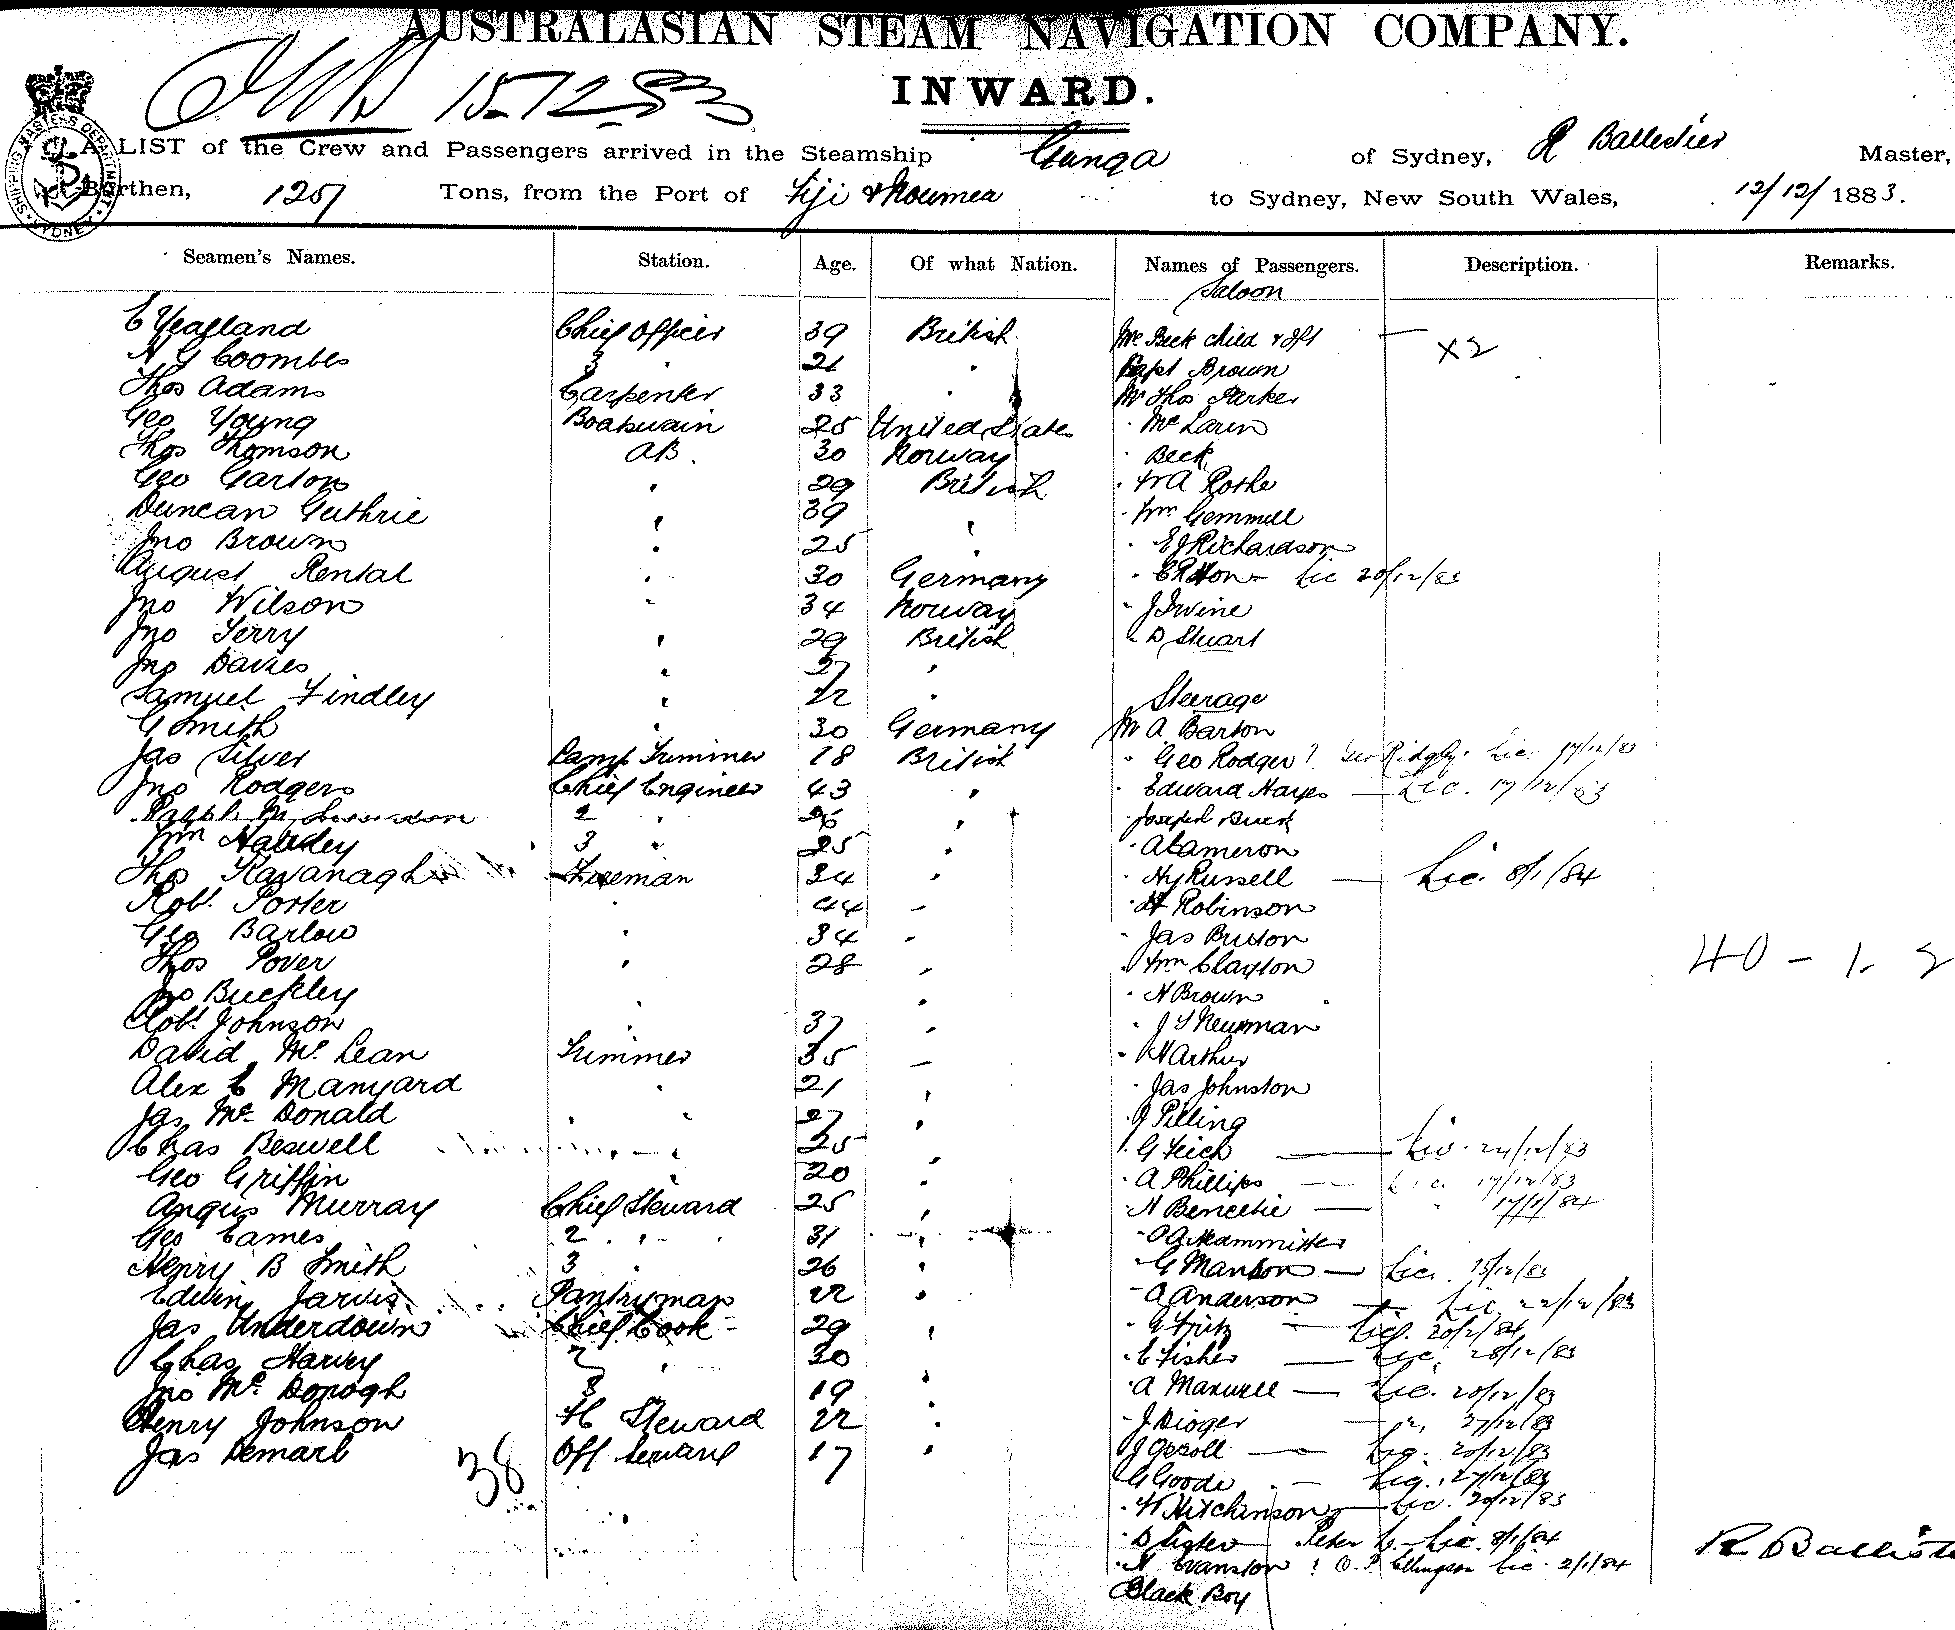 AUSTRALASIAN STEAM NAVIGATION COMPANY.
15.12.83
INWARD.
A LIST of the Crew and Passengers arrived in the Steamship Gunga of Sydney, R Ballestier Master,
Burthen, 1257 Tons, from the Port of Fiji & Noumea to Sydney, New South Wales, 12/12/1883.
Seamen's Names. Station. Age. Of what Nation. Names of Passengers. Description. Remarks.
Saloon
Chief Officer 39 British Beck child & X2
A G Coombes 3 " 21 " Capt Brown
Thos Adams Carpenter 33 " Mr Thos Parker
Geo Young Boatswain 25 United States " McLaren
Thos Thomson AB. 30 Norway " Beck
Geo Garton " 29 British "
Duncan Guthrie " 39 " " Wm Gemmell
Jno Brown " 25 " " E J Richardson
August Rental " 30 Germany " Lic 20/12/83
Jno Wilson " 34 Norway " J Irvine
Jno Terry " 29 British " D Stuart
Jno Davies " 27 "
Samuel Findley " 22 " Steerage
G Smith " 30 Germany Mr A Barton
Jas Silver Lamp Trimmer 18 British " Geo Rodger ? Geo Ridgly. Lic. 17/12/83
Jno Rodgers Chief Engineer 43 " " Edward Hayes — Lic. 17/12/83
Ralph M 2 " 26 " Joseph
Wm 3 " 25 " " A Cameron
Thos Kavanagh Fireman 34 " " Hy Russell — Lic. 8/1/84
Robt Porter " 44 " " Robinson
Geo Barlow " 34 " " Jas Buxton
Thos Pover " 28 " " Wm Clayton 40 - 1. 2
Jno Buckley " " " N Brown
Robt Johnson " 37 " " J S Newman
David McLean Trimmer 35 " " Arthur
Alex C Manyard " 21 " " Jas Johnston
Jas McDonald " 27 " " J Pilling
Chas Beswell " 25 " " G — Lic. 24/12/83
Geo Griffin " 20 " " A Phillips — Lic. 17/12/83
Angus Murray Chief Steward 25 " " — " 17/1/84
Geo Eames 2 " 31 "
Henry B Smith 3 " 26 " " G — Lic. 15/12/83
Edwin Jarvis Pantryman 22 " " A Anderson — Lic. 22/12/83
Jas Underdown Chief Cook 29 " " Fritz — Lic. 20/2/84
Chas Harvey 2 " 30 " " C Fisher — Lic. 28/12/83
Jno McDonogh 3 19 " " A Maxwell — Lic. 20/12/83
Henry Johnson Steward 22 " " J — 27/12/83
Jas Demarl Off Servant 17 " " J — Lic. 20/12/83
38
" G Goode — Lic. 27/12/83
" Hitchinson — Lic. 20/12/83
" Peter L. Lic. 8/1/84
" Evanston ? Ellingsen Lic. 2/1/84
Black Boy